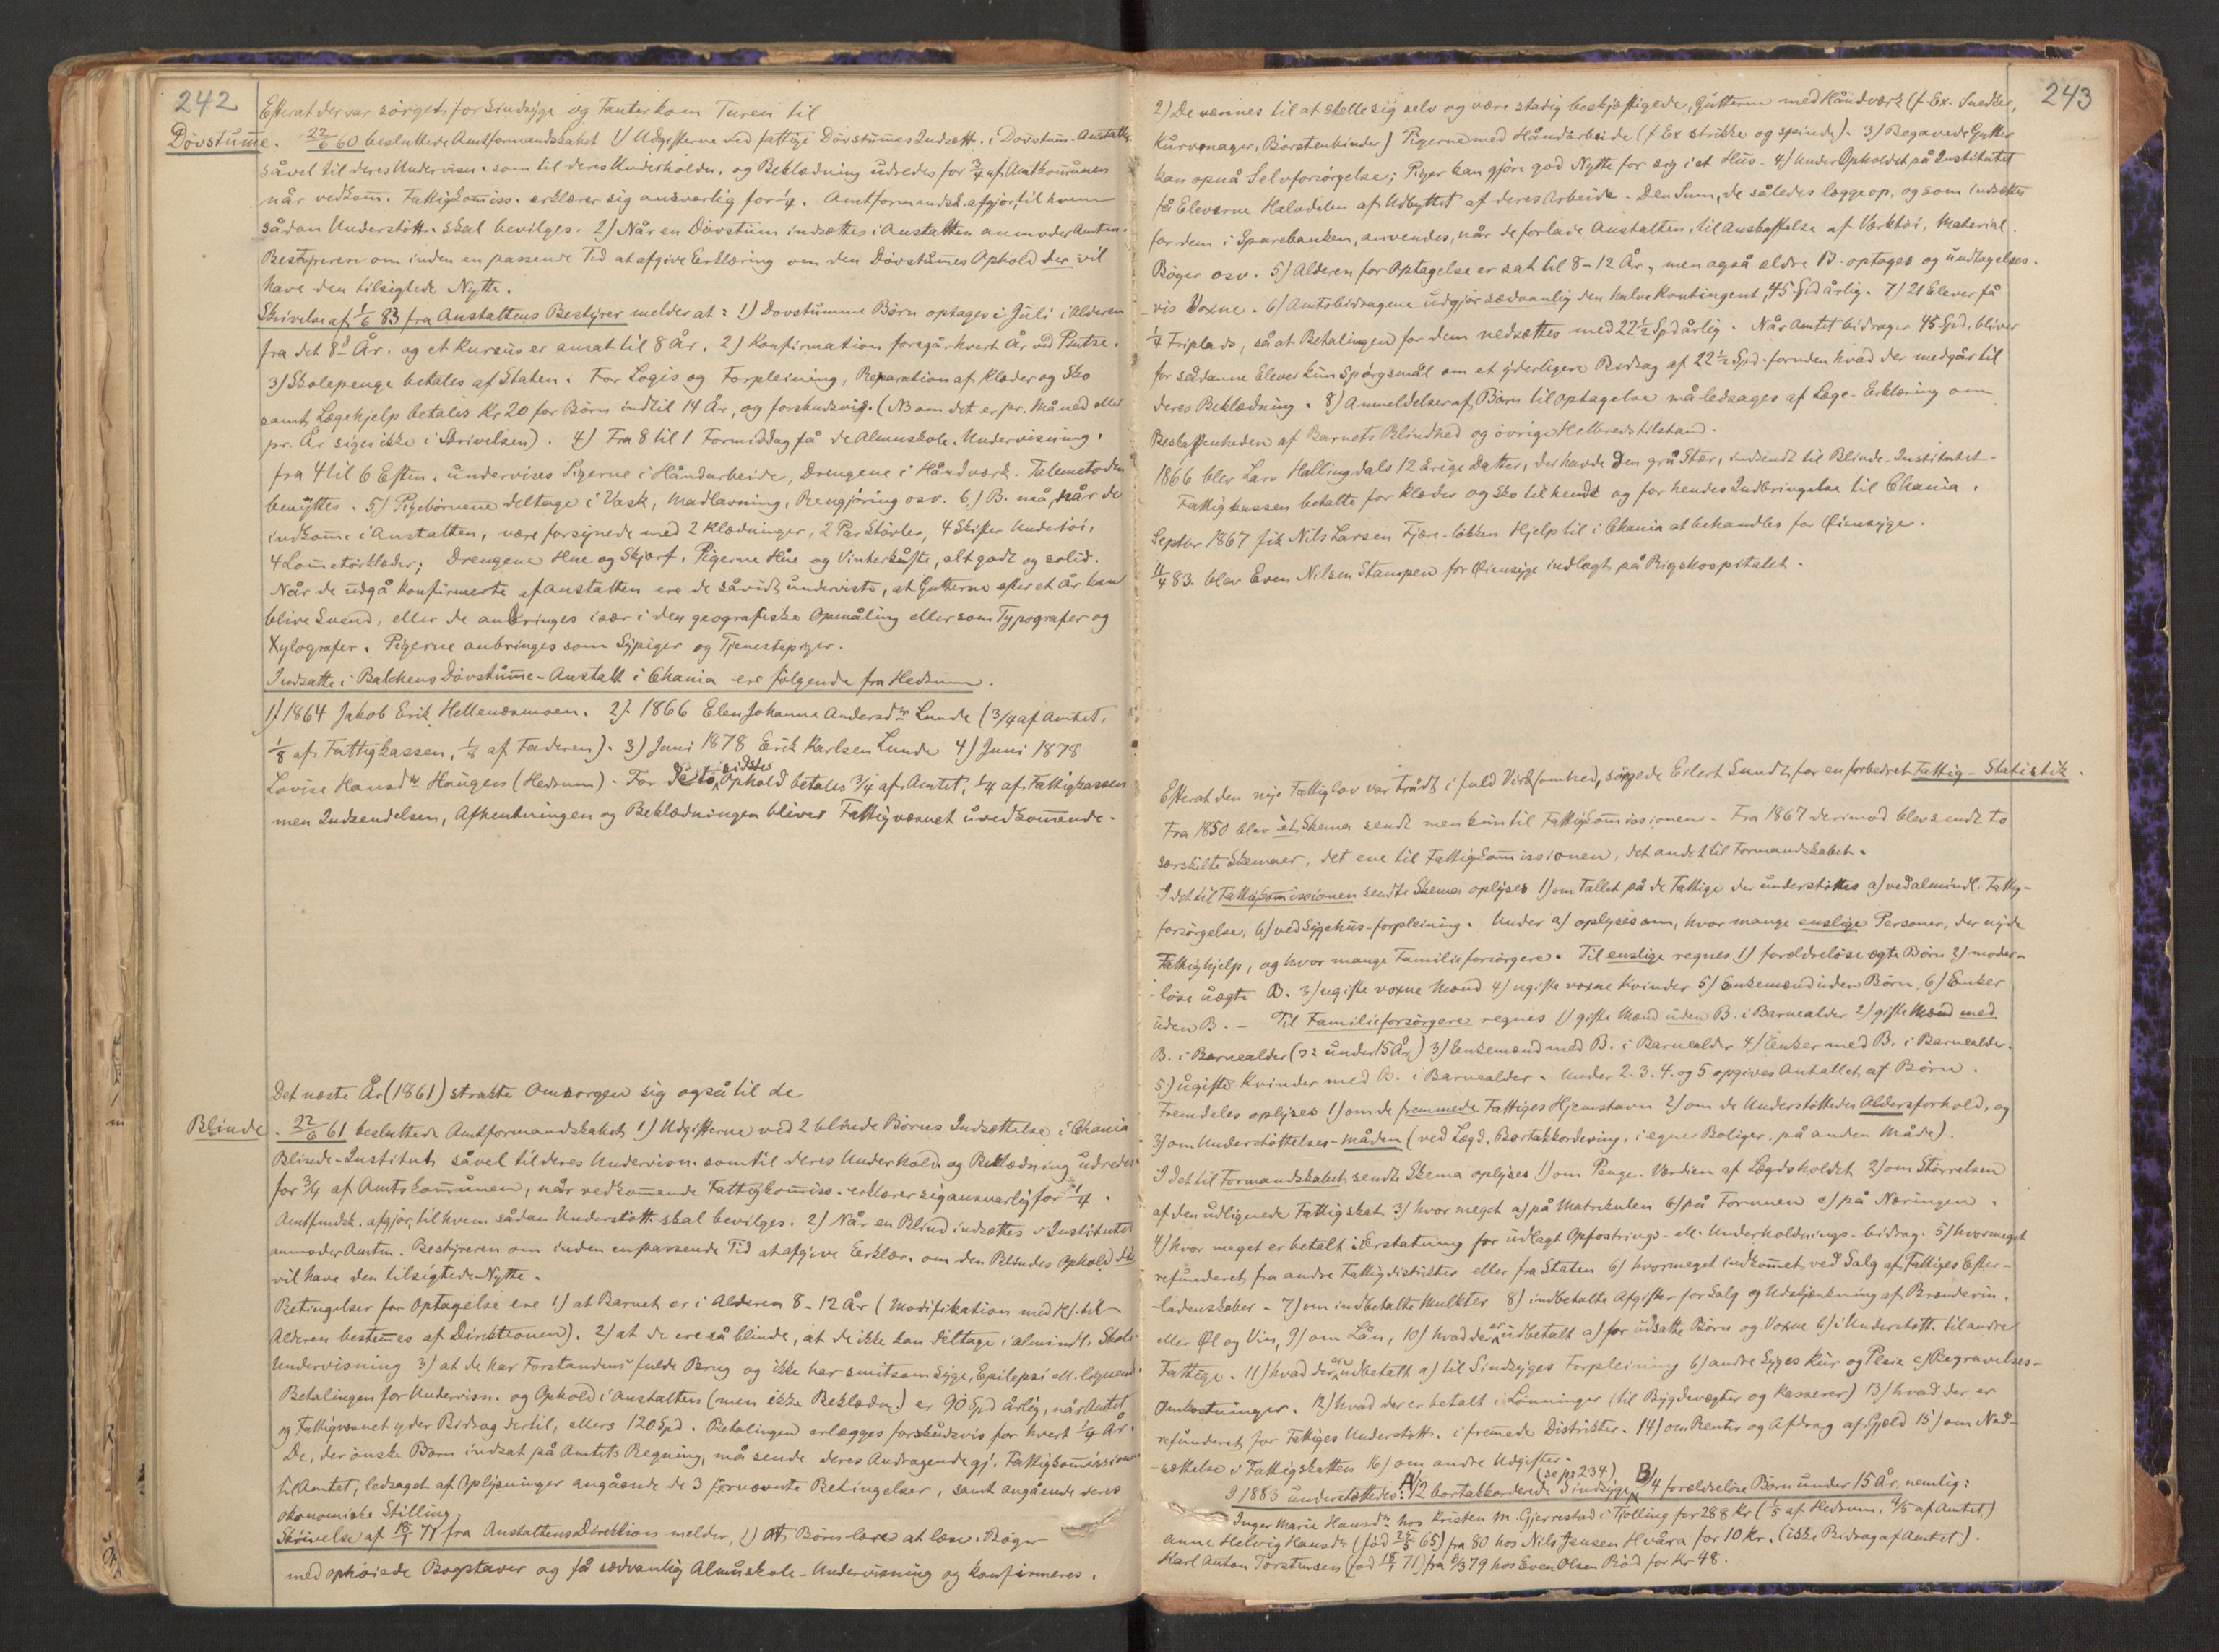 242
Efterat der var sörget for Sindsyge og Fanter kom Turen til
Dövstum̄e. 22/6 60 besluttede Amtformandskabet 1) Udgifterne ved fattige Dövstum̄es Indsætt. i Dövstum-Anstalter
såvel til deres Undervisn. som til deres Underholdn. og Beklædning udredes for 3/4 af Amtkom̄unen
når vedkom̄. Fattigkom̄iss. erklærer sig ansvarlig for 1/4. Amtformandsk. afgjör, til hvem
sådan Understött. skal bevilges. 2) Når en Dövstum indsættes i Anstalten anmoder Amtm.
Bestyreren om inden en passende Tid at afgive Erklæring om den Dövstum̄es Ophold der vil
have den tilsigtede Nytte.
Skrivelse af 1/6 83 fra Anstaltens Bestyrer melder at: 1) Dovstumme Börn optages i Juli i Alderen
fra det 8de År. og et Kursus er ansat til 8 År. 2) Konfirmation foregår hvert År ved Pintse.
3) Skolepenge betales af Staten. For Logis og Forpleining, Reparation af Klæder og Sko
samt Lægehjelp betales Kr 20 for Börn indtil 14 År, og forskudsvis. (NB om det er pr. Måned eller
pr. År siges ikke i Skrivelsen). 4) Fra 8 til 1 Formiddag få de Almuskole-Undervisning.
fra 4 til 6 Eftm. undervises Pigerne i Håndarbeide, Drengene i Håndværk. Talemetoden
benyttes. 5) Pigebörnene deltage i Vask, Madlavning, Rengjöring osv. 6) B. må, når de
indkom̄e i Anstalten, være forsynede med 2 Klædninger, 2 Par Stövler, 4 Skifter Undertöi,
4 Lom̄etörklæder; Drengene Hue og Skjærf. Pigerne Hue og Vinterkåpe, alt godt og solid.
Når de udgå konfirmerte af Anstalten ere de såvidt underviste, at Gutterne efter et År kan
blive Svend, eller de anbringes især i den geografiske Opmåling eller som Typografer og
Xylografer. Pigerne anbringes som Sypiger og Tjenestepiger.
Indsatte i Balchens Dövstum̄e-Anstalt i Chania ere fölgende fra Hedrum.
1) 1864 Jakob Erik. Hellenæsmoen. 2) 1866 Elen Johanne Andersdtr Lunde (3/4 af Amtet,
1/8 af Fattigkassen, 1/8 af Faderen). 3) Juni 1878 Erik Karlsen Lunde 4) Juni 1878
Lovise Hansdtr Haugen (Hedrum). For de to sidstes Ophold betales 3/4 af Amtet, 1/4 af Fattigkassen
men Indsendelsen, Afhentningen og Beklædningen bliver Fattigvæsnet uvedkom̄ende.
Det næste År (1861) strakte Omsorgen sig også til de
Blinde. 22/6 61 besluttede Amtformandskabet 1) Udgifterne ved 2 blinde Börns Indsættelse i Chania
Blinde-Institut såvel til deres Undervisn. som til deres Underhold. og Beklædning udredes
for 3/4 af Amtskom̄unen, når vedkom̄ende Fattigkom̄iss. erklærer sig ansvarlig for 1/4.
Amtfmdsk. afgjör, til hvem sådan Understött. skal bevilges. 2) Når en Blind indsættes i Institutet
anmoder Amtm. Bestyreren om inden en passende Tid at afgive Erklær. om den Blindes Ophold der
vil have den tilsigtede Nytte.
Betingelser for Optagelse ere 1) at Barnet er i Alderen 8-12 År (Modifikation med H. til
Alderen bestem̄es af Direktionen). 2) at de ere så blinde, at de ikke kan deltage i almindl. Skole
Undervisning 3) at de har Forstandens fulde Brug og ikke har smitsom Syge, Epilepsi ell. lignende
Betalingen for Undervisn. og Ophold i Anstalten (men ikke Beklædn.) er 90 Spd årlig, når Amtet
og Fattigvæsnet yder Bidrag dertil, ellers 120 Spd. Betalingen erlægges forskudsvis for hvert 1/4 År.
De, der önske Börn indsat på Amtets Regning, må sende deres Andragende gj. Fattigkom̄issionen
til Amtet, ledsaget af Oplysninger angående de 3 förnævnte Betingelser, samt angående deres
ökonomiske Stilling
Skrivelse af 18/1 71 fra Anstaltens Direktion melder, 1) At Börn lære at læse i Böger
med ophöiede Bogstaver og få sædvanlig Almuskole-Undervisning og konfirmeres.
243
2) De vænnes til at stelle sig selv og være stadig beskjæftigede, Gutterne med Håndværk (f. Ex. Snedker,
Kurvmager, Börstenbinder) Pigerne med Håndarbeide (f. Ex strikke og spinde). 3) Begavede Gutter
kan opnå Selvforsörgelse; Piger kan gjöre god Nytte for sig i et Hus. 4) Under Opholdet på Institutet
få Eleverne Halvdelen af Udbyttet af deres Arbeide. Den Sum, de således lægge op, og som indsættes
for dem i Sparebanken, anvendes, når de forlade Anstalten, til Anskaffelse af Værktöi, Material.
Böger osv. 5) Alderen for Optagelse er sat til 8-12 År, men også ældre B. optages og undtagelses-
-vis Voxne. 6) Amtsbidragene udgjör sædvanlig den halve Kontingent, 45 Spd årlig. 7) 21 Elever få
1/4 Friplads, så at Betalingen for dem nedsættes med 22 1/2 Spd årlig. Når Amtet bidrager 45 Spd, bliver
for sådanne Elever kun Spörgsmål om et yderligere Bidrag af 22 1/2 Spd. foruden hvad der medgår til
deres Beklædning. 8) Anmeldelser af Börn til Optagelse må ledsages af Læge-Erklæring om
Beskaffenheden af Barnets Blindhed og övrige Helbredstilstand.
1866 blev Lars Hallingdals 12 årige Datter, der havde den grå Stær, indsendt til Blinde-Institutet.
Fattigkassen betalte for Klæder og Sko til hende og for hendes Indbringelse til Chania.
Septbr 1867 fik Nils Larsen Fjære-löbken Hjelp til i Chania at behandles for Öiensyge.
11/4 83. blev Even Nilsen Stampen for Öiensyge indlagt på Rigshospitalet.
Efterat den nye Fattiglov var trådt i fuld Virksomhed, sörgede Eilert Sundt for en forbedret Fattig-Statistik.
Fra 1850 blev et Skema sendt men kun til Fattigkom̄issionen. Fra 1867 derimod blev sendt to
særskilte Skemaer, det ene til Fattigkom̄issionen, det andet til Formandskabet.
I det til Fattigkom̄issionen sendte Skema oplyses 1) om Tallet på de Fattige der understöttes a) ved almindl. Fattig-
forsörgelse, b) ved Sygehus-forpleining. Under a) oplyses om, hvor mange enslige Personer, der nyde
Fattighjelp, og hvor mange Familieforsörgere. Til enslige regnes 1) forældrelöse ægte Börn 2) moder-
-löse uægte B. 3) ugifte voxne Mænd 4) ugifte voxne Kvinder 5) Enkemænd uden Börn, 6) Enker
uden B. - Til Familieforsörgere regnes 1) gifte Mænd uden B. i Barnealder 2) gifte Mænd med
B. i Barnealder (ɔ: under 15 År) 3) Enkemænd med B. i Barnealder 4) Enker med B. i Barnealder.
5) ugifte Kvinder med B. i Barnealder. Under 2. 3. 4. og 5 opgives Antallet af Börn.
Fremdeles oplyses 1) om de fremmede Fattiges Hjemstavn 2) om de Understöttedes Aldersforhold, og
3) om Understöttelses-måden (ved Lægd, Bortakkordering, i egne Boliger, på anden Måde).
I det til Formandskabet sendte Skema oplyses 1) om Penge-Værdien af Lægdsholdet 2) om Störrelsen
af den udlignede Fattigskat 3) hvor meget a) på Matrikulen b) på Formuen c) på Næringen.
4) hvor meget er betalt i Erstatning for udlagt Opfostrings- ell. Underholdnings-bidrag. 5) hvormeget
refunderet fra andre Fattigdistrikter eller fra Staten 6) hvormeget indkom̄et ved Salg af Fattiges Efter-
-ladenskaber - 7) om indbetalte Mulkter 8) indbetalte Afgifter for Salg og Udskjænkning af Brændevin.
eller Öl og Vin, 9) om Lån, 10) hvad der er udbetalt a) for udsatte Börn og Voxne b) i Understött. til andre
Fattige. 11) hvad der er udbetalt a) til Sindsyges Forpleining b) andre Syges Kur og Pleie c) Begravelses-
Omkostninger. 12) hvad der er betalt i Lönninger (til Bygdevægter og Kasserer) 13) hvad der er
refunderet for Fattiges Understött. i frem̄ede Distrikter. 14) om Renter og Afdrag af Gjeld 15) om Ned-
-sættelse i Fattigskatten 16) om andre Udgifter.
I 1883 understöttedes: A) 12 bortakkorderede Sindsyge (se p: 234) B) 4 forældrelöse Börn under 15 År, nemlig:
Inger Marie Hansdtr hos Kristen M. Gjerrestad i Tjölling for 288 Kr (1/5 af Hedrum, 4/5 af Amtet.)
Anne Helvig Hansdtr (född 25/5 65) fra 80 hos Nils Jensen Hvåra for 10 Kr. (ikke Bidrag af Amtet).
Karl Anton Torstensen (född 18/1 71) fra 6/3 79 hos Even Olsen Röd for Kr 48.